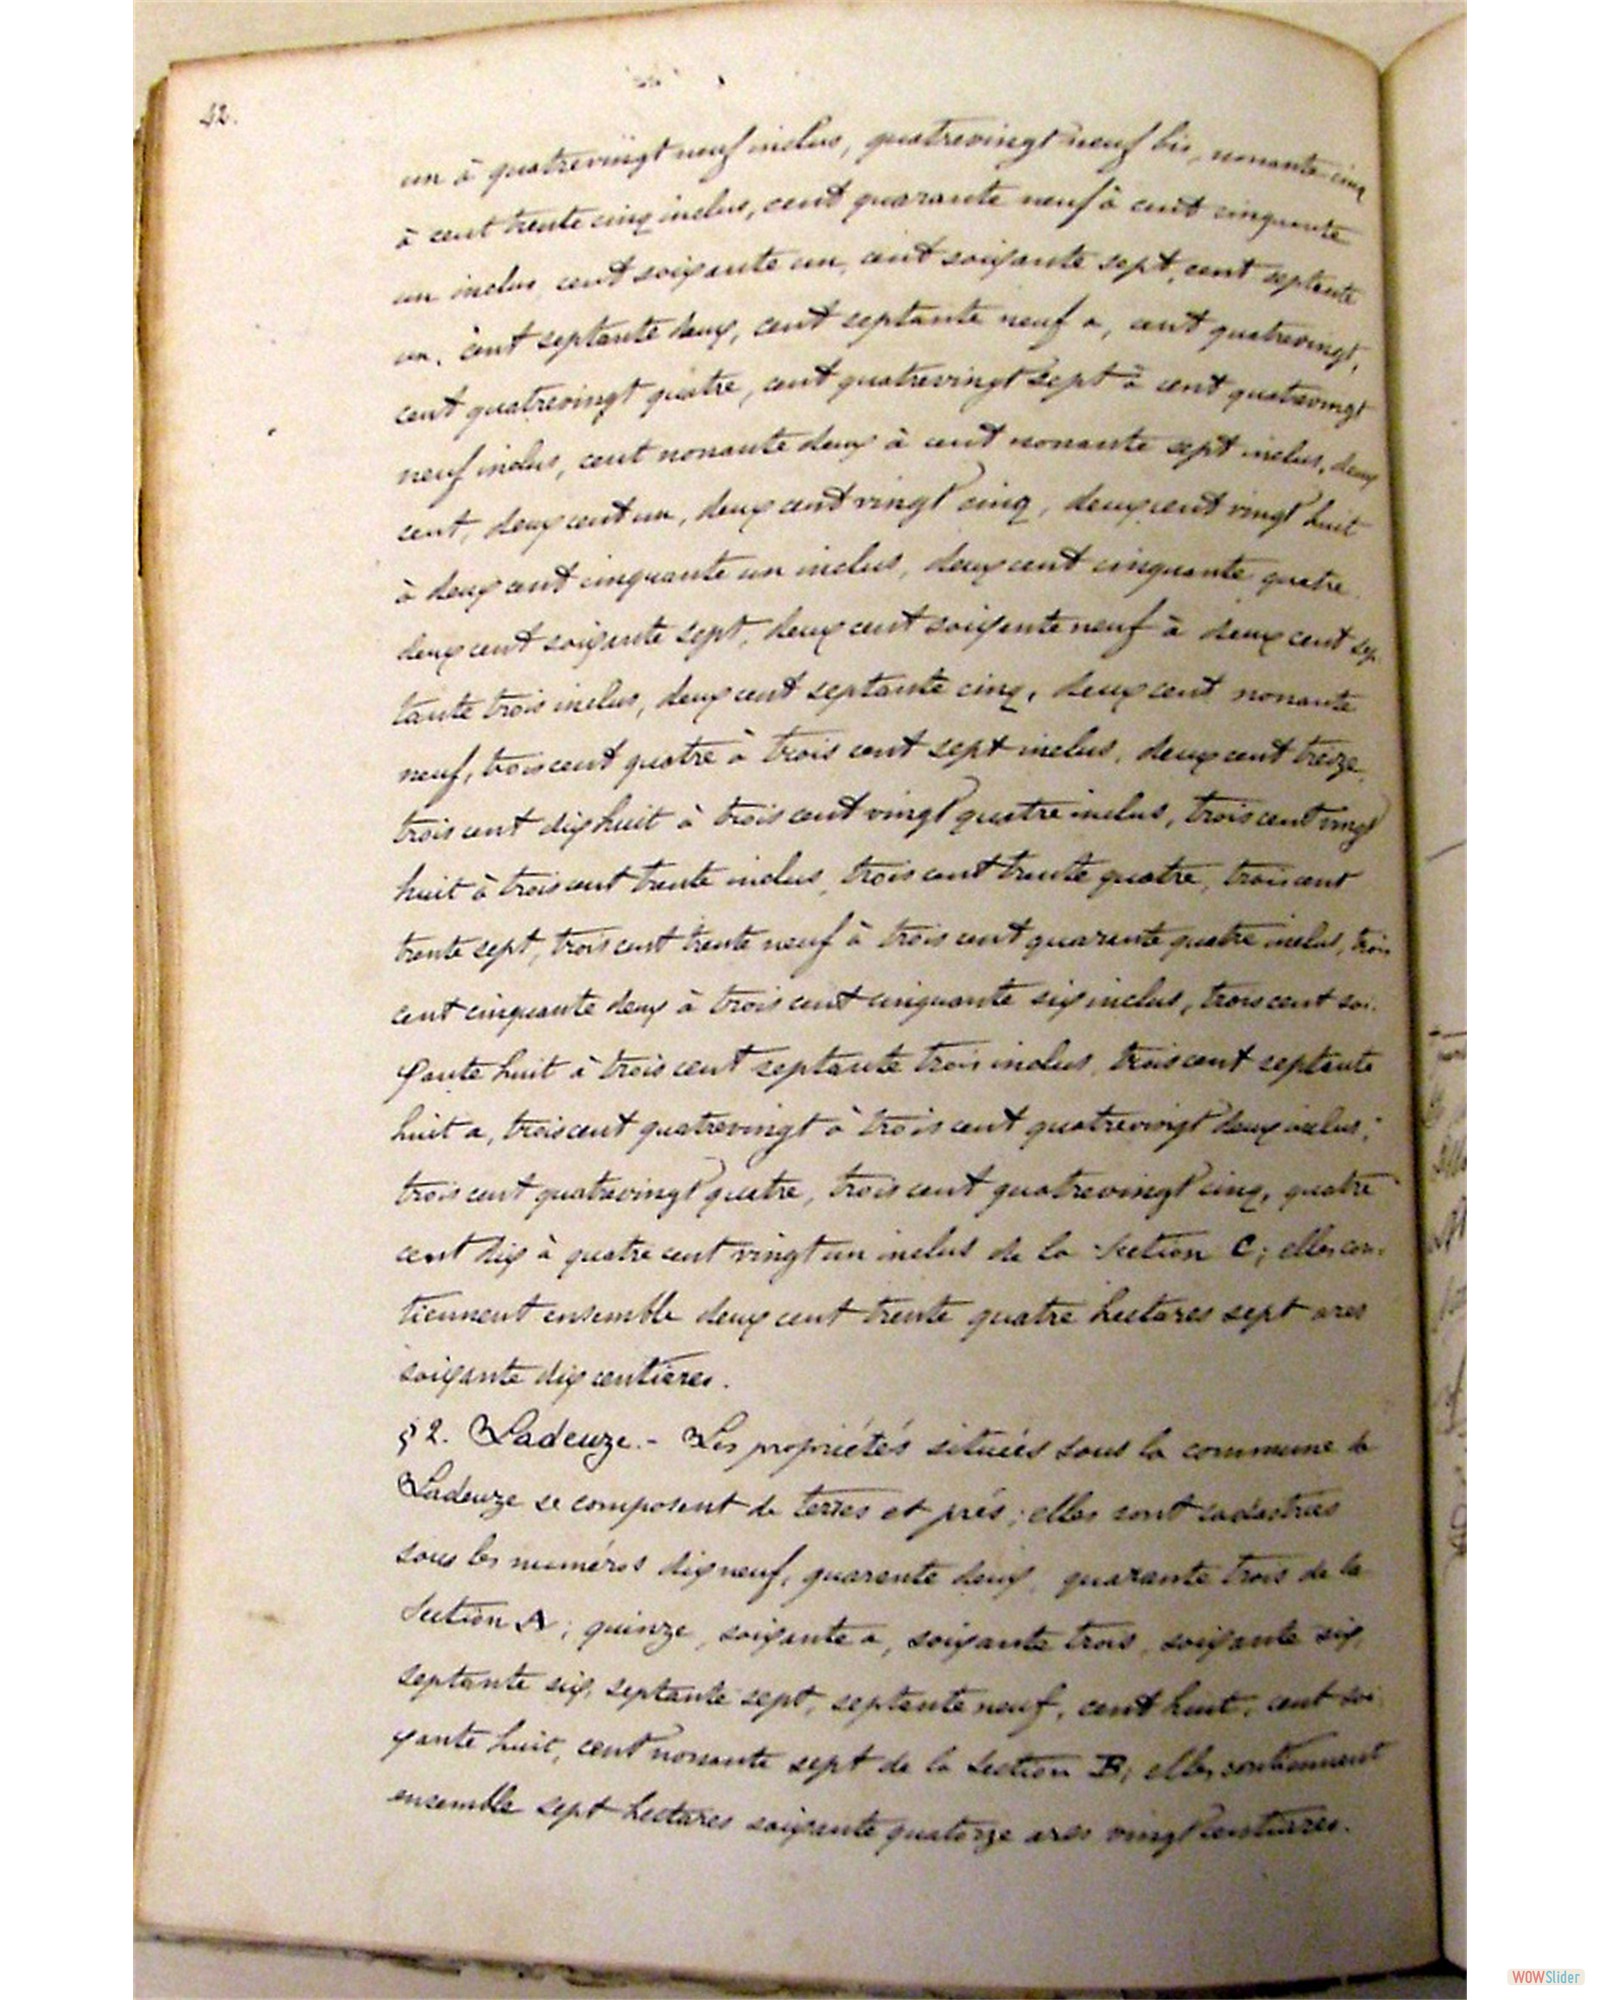 42.
un à quatrevingt neuf inclus, quatrevingt neuf bis, nonante cinq
à cent trente cinq inclus, cent quarante neuf à cent cinquante
un inclus, cent soixante un, cent soixante sept, cent septante
un, cent septante deux, cent septante neuf a, cent quatrevingt,
cent quatrevingt quatre, cent quatrevingt sept à cent quatrevingt
neuf inclus, cent nonante deux à cent nonante sept inclus, deux
cent, deux cent un, deux cent vingt cinq, deux cent vingt huit
à deux cent cinquante un inclus, deux cent cinquante quatre
deux cent soixante sept, deux cent soixante neuf à deux cent sep-
tante trois inclus, deux cent septante cinq, deux cent nonante
neuf, trois cent quatre à trois cent sept inclus, deux cent treize,
trois cent dix huit à trois cent vingt quatre inclus, trois cent vingt
huit à trois cent trente inclus, trois cent trente quatre, trois cent
trente sept, trois cent trente neuf à trois cent quarante quatre inclus, trois
cent cinquante deux à trois cent cinquante six inclus, trois cent soi-
xante huit à trois cent septante trois inclus, trois cent septante
huit a, trois cent quatrevingt à trois cent quatrevingt deux inclus,
trois cent quatrevingt quatre, trois cent quatrevingt cinq, quatre
cent dix à quatre cent vingt un inclus de la Section C; elles con-
tiennent ensemble deux cent trente quatre hectares sept ares
soixante dix centiares.
§ 2. Ladeuze. - Les propriétés situées sous la commune de
Ladeuze se composent de terres et prés; elles sont cadastrées
sous les numéros dix neuf, quarante deux, quarante trois de la
Section A; quinze, soixante a, soixante trois, soixante six,
septante six, septante sept, septante neuf, cent huit, cent soi-
xante huit, cent nonante sept de la Section B; elles contiennent
ensemble sept hectares soixante quatorze ares vingt centiares.
WOWSlider